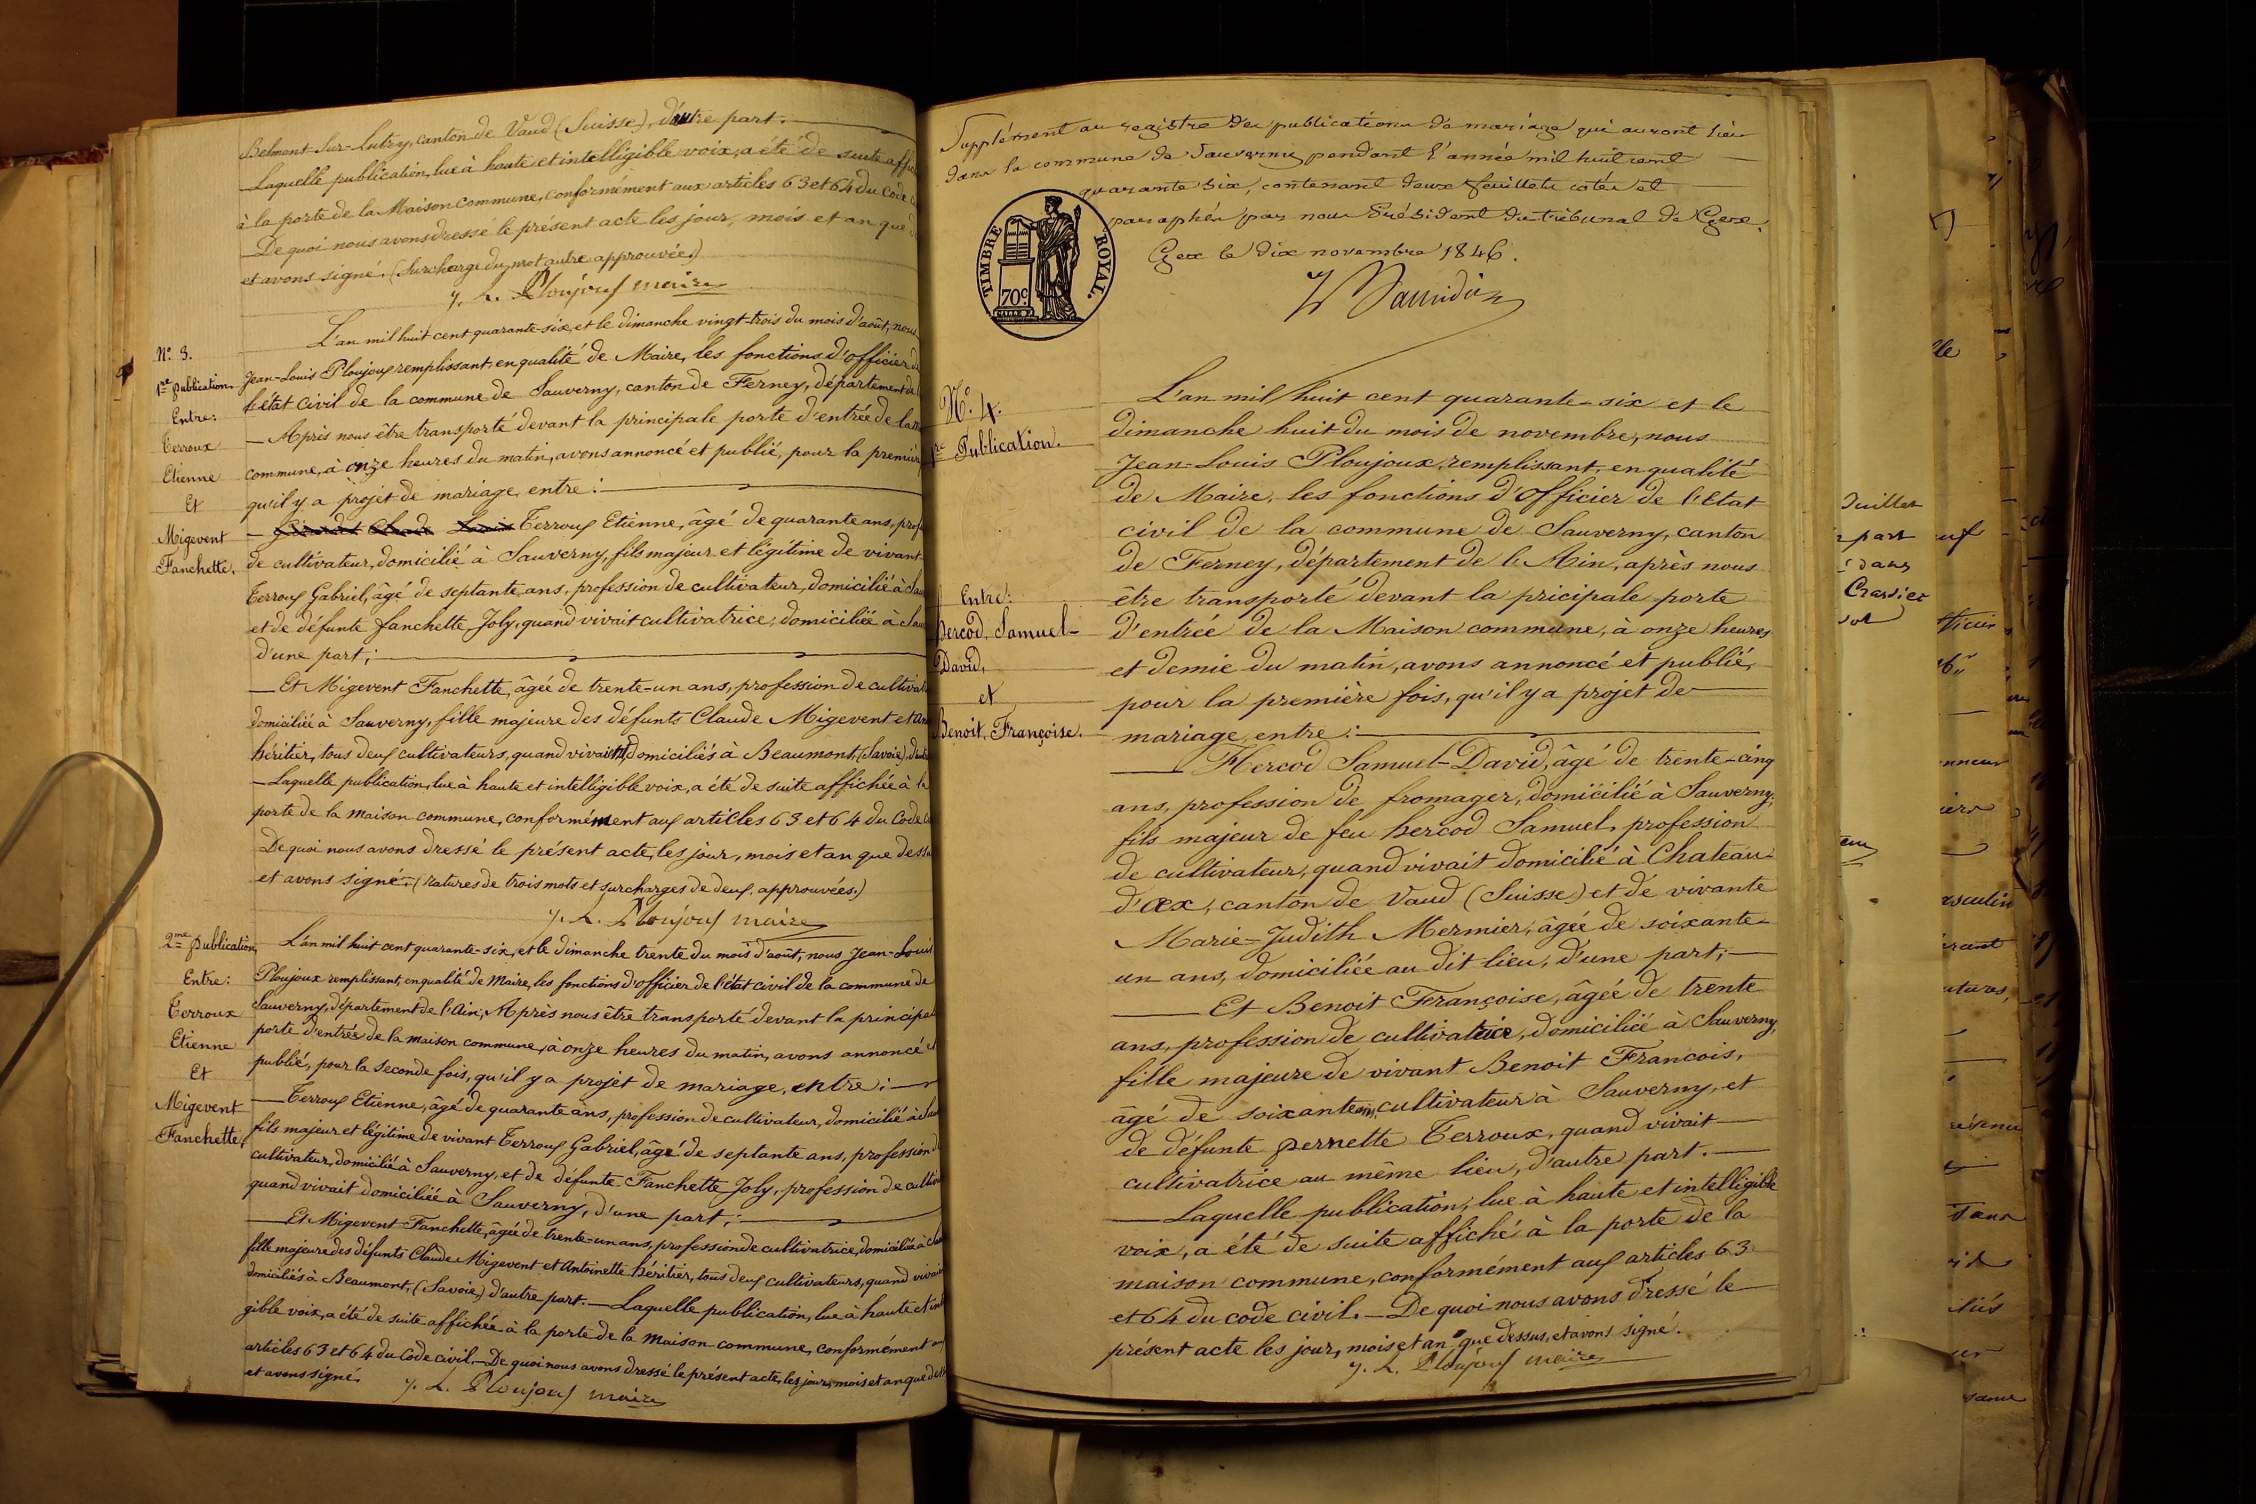 Belmont-Sur-Lutry, canton de Vaud (Suisse), d'autre part.
Laquelle publication, lue à haute et intelligible voix, a été de suite affi
à la porte de la Maison commune, conformément aux articles 63 et 64 du Code
De quoi nous avons dressé le présent acte les jour, mois et an que
et avons signé. (Surcharge du mot autre approuvée.)
J. L. Ploujoux maire
N.o 3.
1re publication.
Entre:
Terroux
Etienne
Et
Migevent
Fanchette.
L'an mil huit cent quarante-six, et le dimanche vingt-trois du mois d'août, nous
Jean-Louis Ploujoux remplissant, en qualité de Maire, les fonctions d'officier de
l'état civil de la commune de Sauverny, canton de Ferney, département de
— Après nous être transporté devant la principale porte d'entrée de la
commune, à onze heures du matin, avons annoncé et publié, pour la première
qu'il y a projet de mariage, entre:
— Terroux Etienne, âgé de quarante ans, prof
de cultivateur, domicilié à Sauverny, fils majeur et légitime de vivant
Terroux Gabriel, âgé de septante ans, profession de cultivateur, domicilié à Sau
et de défunte Fanchette Joly, quand vivait cultivatrice, domiciliée à Sau
d'une part;
— Et Migevent Fanchette, âgée de trente-un ans, profession de cultivat
domiciliée à Sauverny, fille majeure des défunts Claude Migevent et An
héritier, tous deux cultivateurs, quand vivaient, domiciliés à Beaumont, (Savoie), d'autre
— Laquelle publication, lue à haute et intelligible voix, a été de suite affichée à la
porte de la maison commune, conformément aux articles 63 et 64 du Code
De quoi nous avons dressé le présent acte, les jour, mois et an que dessus
et avons signé. (ratures de trois mots et surcharges de deux, approuvées.)
J. L. Ploujoux maire
2me publication,
Entre:
Terroux
Etienne
Et
Migevent
Fanchette.
L'an mil huit cent quarante-six, et le dimanche trente du mois d'août, nous Jean-Louis
Ploujoux remplissant, en qualité de Maire, les fonctions d'officier de l'état civil de la commune de
Sauverny, département de l'Ain, Après nous être transporté devant la principale
porte d'entrée de la maison commune, à onze heures du matin, avons annoncé et
publié, pour la seconde fois, qu'il y a projet de mariage, entre:
— Terroux Etienne, âgé de quarante ans, profession de cultivateur, domicilié à Sau
fils majeur et légitime de vivant Terroux Gabriel, âgé de septante ans, profession de
cultivateur, domicilié à Sauverny, et de défunte Fanchette Joly, profession de cultiv
quand vivait domiciliée à Sauverny, d'une part;
— Et Migevent Fanchette, âgée de trente-un ans, profession de cultivatrice, domiciliée à
fille majeure des défunts Claude Migevent et Antoinette héritier, tous deux cultivateurs, quand vivaient
domiciliés à Beaumont, (Savoie) d'autre part. — Laquelle publication, lue à haute et int
gible voix, a été de suite affichée à la porte de la maison commune, conformément aux
articles 63 et 64 du Code civil. — De quoi nous avons dressé le présent acte, les jour, mois et an que dess
et avons signé.
J. L. Ploujoux maire
Supplément au registre des publications de mariage qui auront lieu
dans la commune de Sauverny pendant l'année mil huit cent
quarante six, contenant deux feuillets cotés et
paraphés par nous Président du tribunal de Gex.
Gex le dix novembre 1846.
TIMBRE ROYAL.
70c
N.o 4.
1re Publication.
Entre:
hercod, Samuel-
David,
et
Benoit, Françoise.
L'an mil huit cent quarante-six et le
dimanche huit du mois de novembre, nous
Jean-Louis Ploujoux, remplissant, en qualité
de Maire, les fonctions d'officier de l'Etat
civil de la commune de Sauverny, canton
de Ferney, département de l'Ain, après nous
être transporté devant la pricipale porte
d'entrée de la Maison commune, à onze heures
et demie du matin, avons annoncé et publié,
pour la première fois, qu'il y a projet de
mariage, entre:
— Hercod Samuel-David, âgé de trente-cinq
ans, profession de fromager, domicilié à Sauverny,
fils majeur de feu hercod Samuel, profession
de cultivateur, quand vivait domicilié à Chateau-
d'œx, canton de Vaud (Suisse) et de vivante
Marie-Judith Mermier, âgée de soixante-
un ans, domiciliée au dit lieu, d'une part;
— Et Benoit Françoise, âgée de trente
ans, profession de cultivatrice, domiciliée à Sauverny,
fille majeure de vivant Benoit Francois,
âgé de soixante ans, cultivateur à Sauverny, et
de défunte pernette Terroux, quand vivait
cultivatrice au même lieu, d'autre part.
— Laquelle publication, lue à haute et intelligible
voix, a été de suite affiché à la porte de la
maison commune, conformément aux articles 63
et 64 du code civil. — De quoi nous avons dressé le
présent acte les jour, mois et an que dessus, et avons signé.
J. L. Ploujoux maire
Juillet
part
dans
Crassier